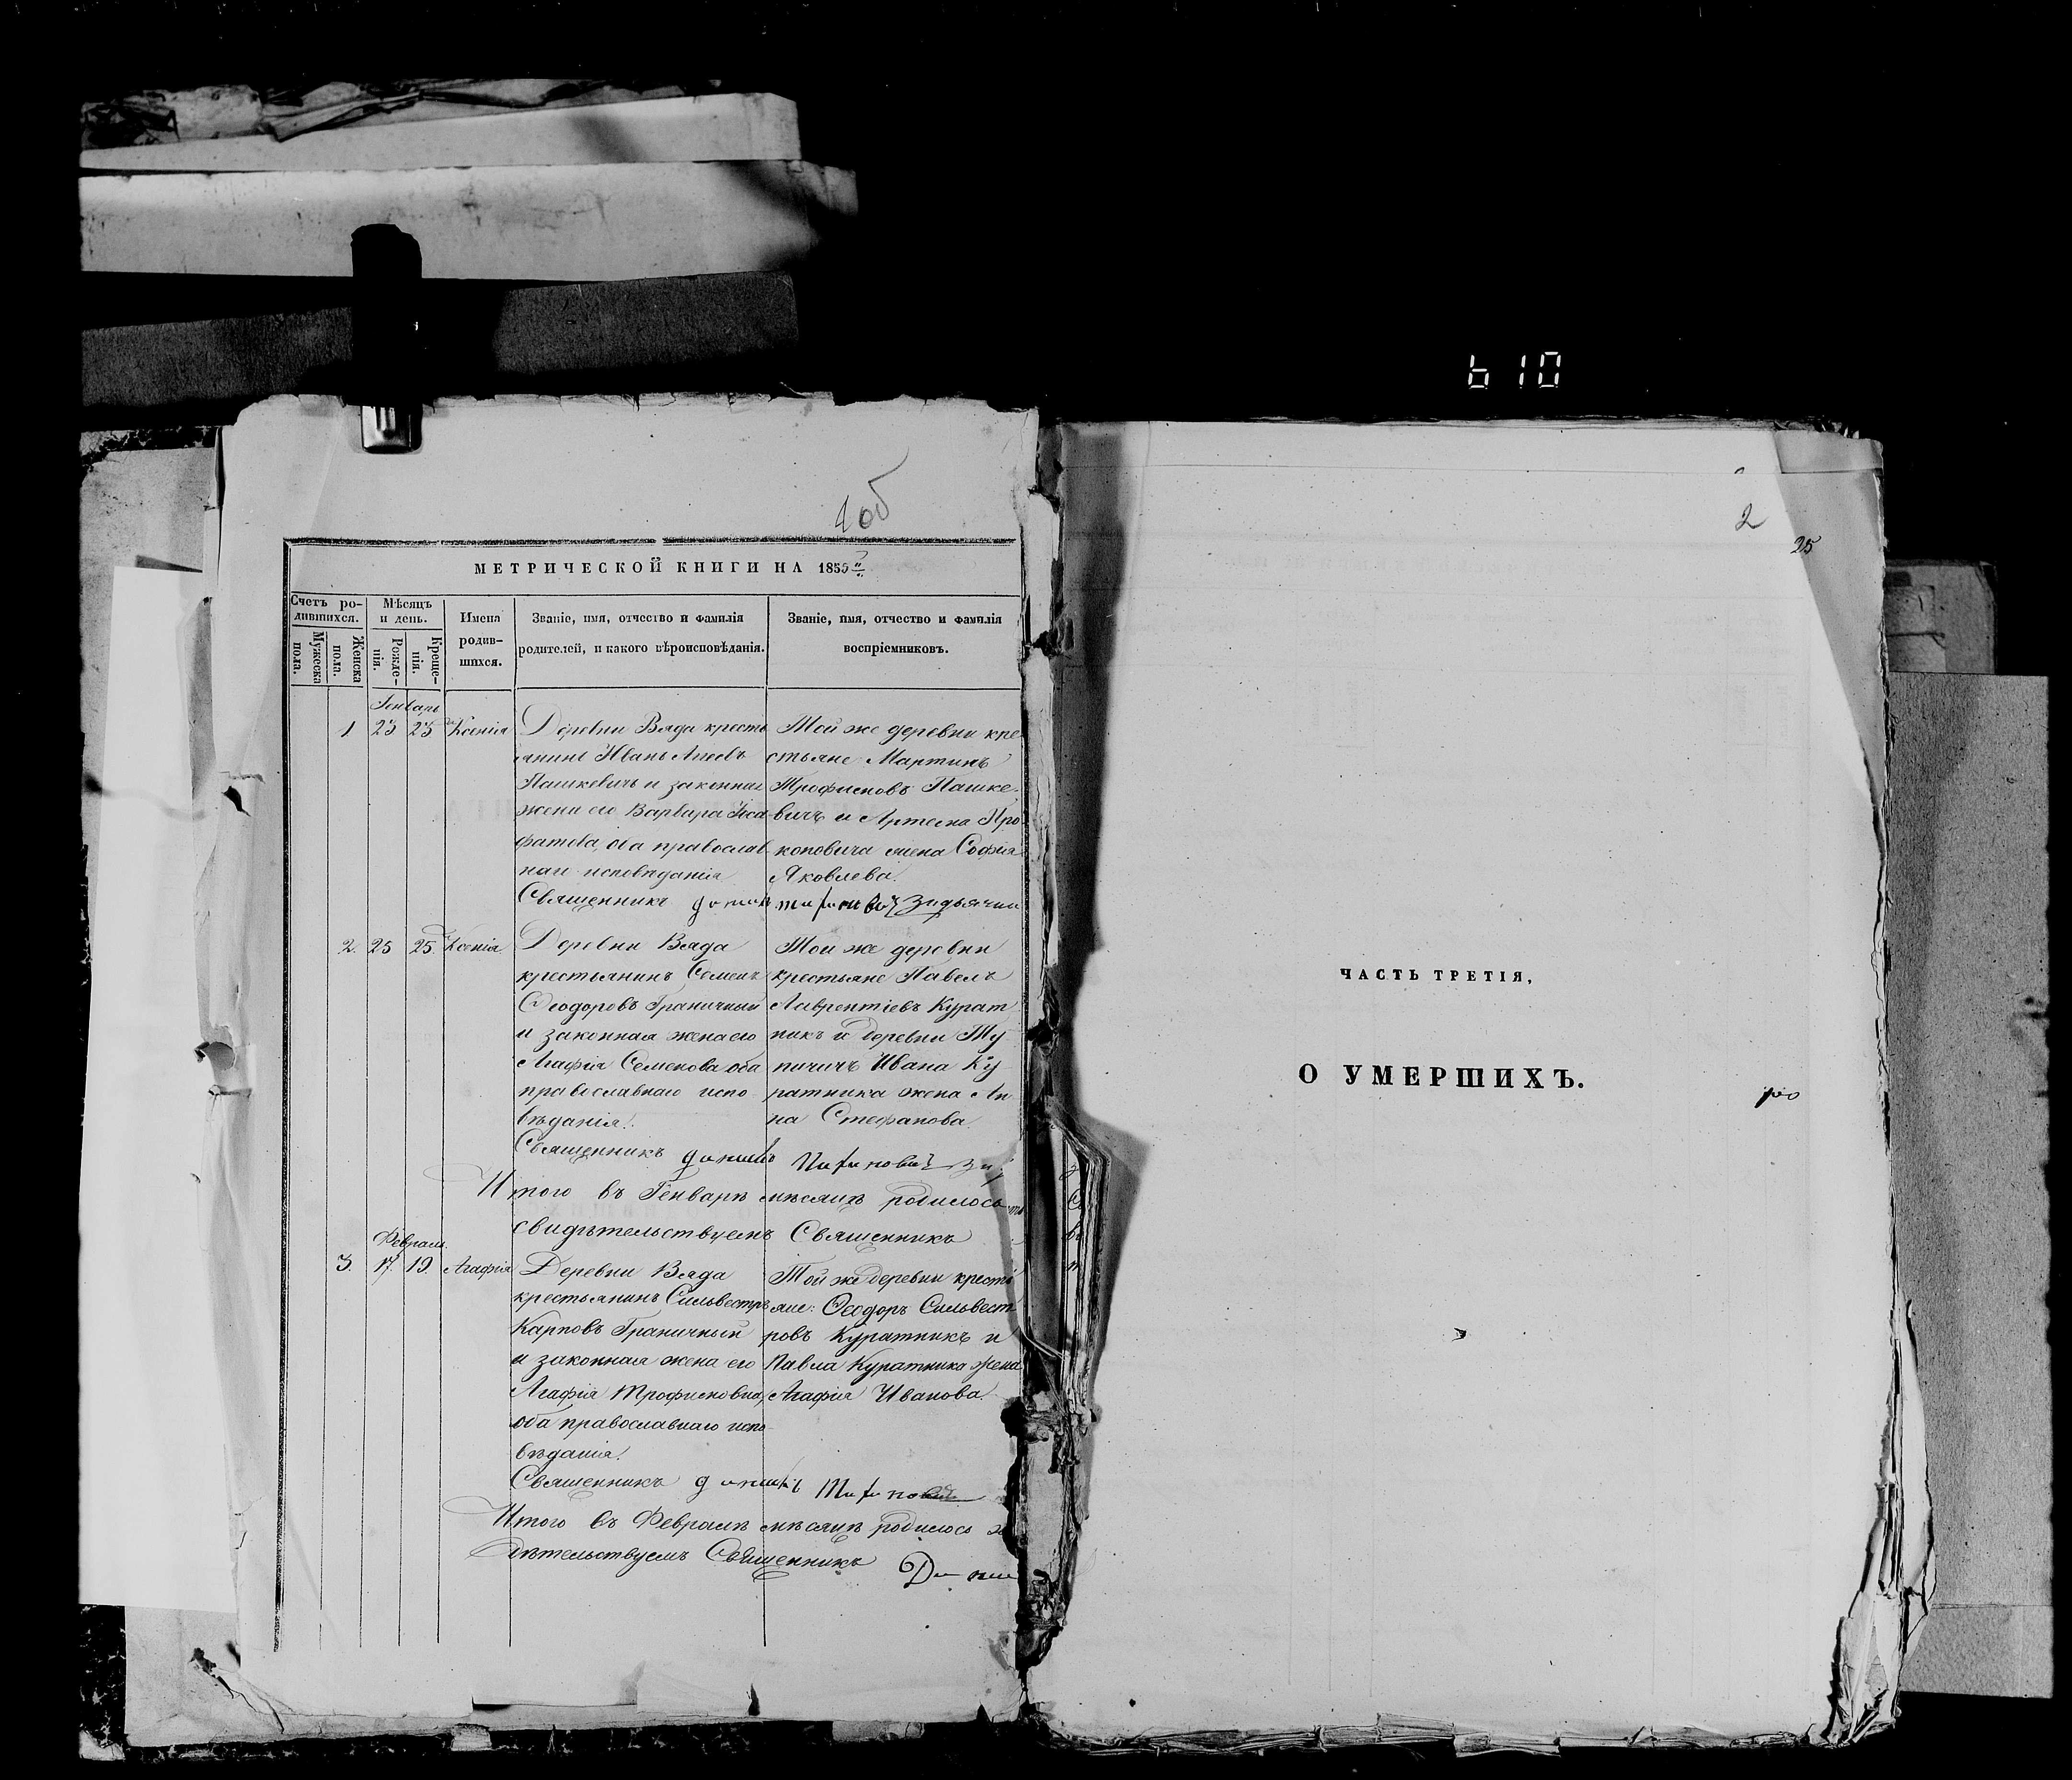 610
1об
МЕТРИЧЕСКОЙ КНИГИ НА 1855
Счетъ ро-
дившихся.
Мѣсяцъ
и день.
Имена
родив-
шихся.
Званіе, имя, отчество и фамилія
родителей, и какого вѣроисповѣданія.
Званіе, имя, отчество и фамилія
воспріемниковъ.
Мужеска
пола.
Женска
пола.
Рожде-
нія.
Креще-
нія.
Генварь
1 23 23 Ксенія
Деревни Вяда кресть
янинъ Иванъ
Пашкевичъ и законная
жена его Варвара
оба православ
наго исповѣданія
Священникъ
Той же деревни кре
стьяне Мартинъ
Трофимовъ Пашке-
вичъ и Артема Про
коповича жена Софія
Яковлева.
2. 25 25 Ксенія
Деревни Вяда
крестьянинъ Семенъ
Ѳеодоровъ Граничный
и законная жена его
Агафія Семенова оба
православнаго испо
вѣданія.
Священникъ
Той же деревни
крестьяне Павелъ
Лаврентіевъ Курат
никъ и деревни Ту
пичичъ Ивана Ку
ратника жена Ан
на Стефанова
Итого въ Генварѣ мѣсяцѣ родилось
свидѣтельствуемъ Священникъ
Февраль
3. 17. 19. Агафія
Деревни Вяда
крестьянинъ Сильвестръ
Карповъ Граничный
и законная жена его
Агафія Трофимовна,
оба православнаго испо-
вѣданія.
Священникъ
Той же деревни кресть
яне: Ѳеодоръ Сильвест
ровъ Куратникъ и
Павла Куратника жена
Агафія Иванова.
Итого въ Февралѣ мѣсяцѣ родилось
дѣтельствуемъ Священникъ
2
25
ЧАСТЬ ТРЕТІЯ,
О УМЕРШИХЪ.